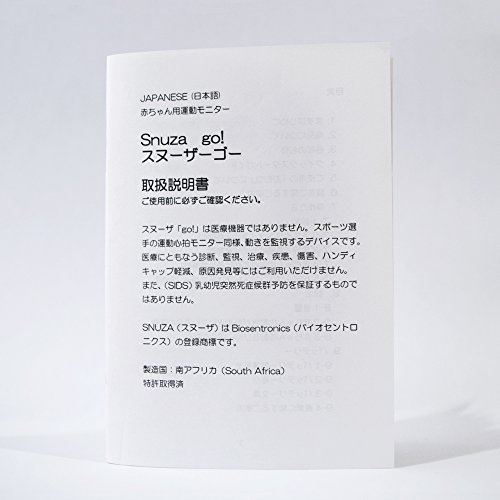 JAPANESE (日本語)
赤ちゃん用運動モニター
Snuza go!
スヌーザーゴー
取扱説明書
ご使用前に必ずご確認ください。
スヌーザ「go!」は医療機器ではありません。スポーツ選
手の運動心拍モニター同様、動きを監視するデバイスです。
医療にともなう診断、監視、治療、疾患、傷害、ハンディ
キャップ軽減、原因発見等にはご利用いただけません。
また、(SIDS) 乳幼児突然死症候群予防を保証するもので
はありません。
SNUZA (スヌーザ) は Biosentronics (バイオセントロ
ニクス) の登録商標です。
製造国：南アフリカ (South Africa)
特許取得済